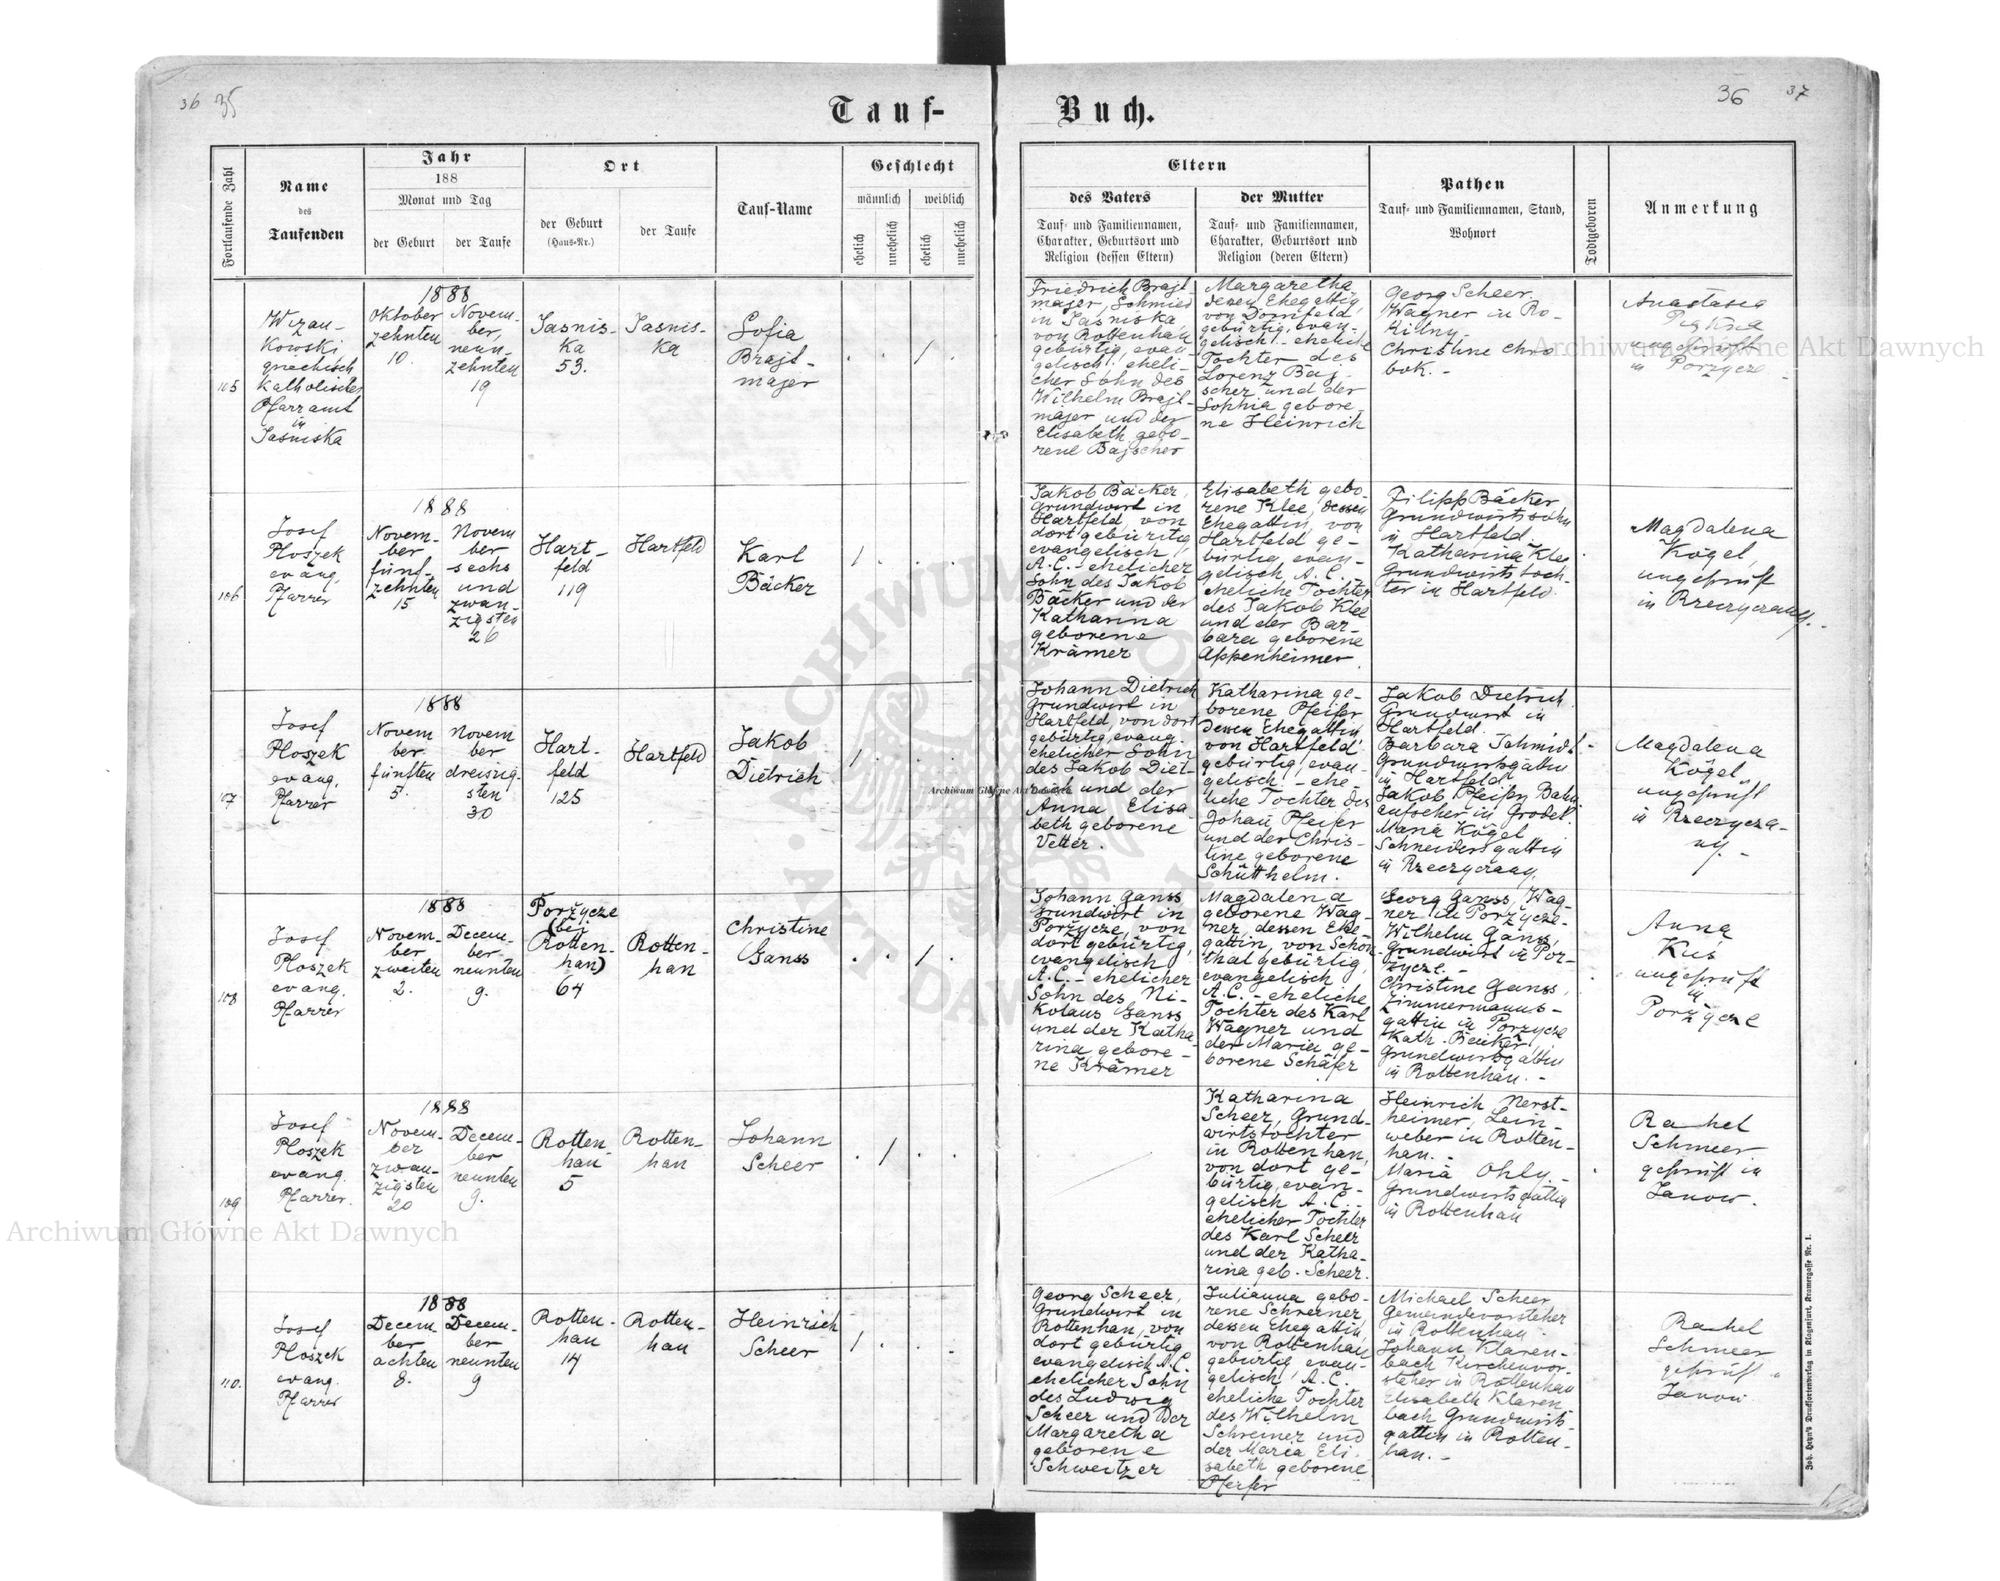 36 35
Tauf-
Buch.
36 37
Fortlaufende Zahl
Name
des
Taufenden
Jahr
188
Monat und Tag
der Geburt
der Taufe
Ort
der Geburt
(Haus-Nr.)
der Taufe
Tauf-Name
Geschlecht
männlich
weiblich
ehelich
unehelich
ehelich
unehelich
Eltern
des Vaters
Tauf- und Familiennamen,
Charakter, Geburtsort und
Religion (dessen Eltern)
der Mutter
Tauf- und Familiennamen,
Charakter, Geburtsort und
Religion (deren Eltern)
Pathen
Tauf- und Familiennamen, Stand,
Wohnort
Todtgeboren
Anmerkung
105
Wizan-
kowski
griechisch
katholisches
Pfarramt
in
Jasniska
1888
Oktober
zehnten
10.
Novem-
ber,
neun-
zehnten
19
Jasnis-
ka
53.
Jasnis-
ka
Sofia
Brajl-
majer
Friedrich Brajl-
majer, Schmied
in Jasniska,
von Rottenhan
gebürtig, evan-
gelisch: eheli-
cher Sohn des
Wilhelm Brajl-
majer und der
Elisabeth gebo-
rene Bajscher
Margaretha
deren Ehegattin,
von Dornfeld
gebürtig, evan-
gelisch: eheliche
Tochter des
Lorenz Baj-
scher und der
Sophia gebore-
ne Heinrich
Georg Scheer,
Wagner in Ro-
kitny.-
Christine Chro
bok.-
Anastasia
ungeprüft
in Porzycze
106
Josef
Ploszek
evang.
Pfarrer
1888
Novem-
ber
fünf-
zehnten
15
Novem
ber
sechs
und
zwan-
zigsten
26
Hart-
feld
119
Hartfeld
Karl
Bäcker
Jakob Bäcker,
Grundwirt in
Hartfeld, von
dort gebürtig
evangelisch
A.C.- ehelicher
Sohn des Jakob
Bäcker und der
Katharina
geborene
Krämer
Elisabeth gebo-
rene Klee, dessen
Ehegattin, von
Hartfeld ge-
bürtig evan-
gelisch, A.C.
eheliche Tochter
des Jakob Klee
und der Bar-
bara geborene
Appenheimer
Filipp Bäcker
Grundwirtssohn
in Hartfeld.
Katharina Klee
Grundwirtstoch-
ter in Hartfeld.
Magdalena
Kögel,
ungeprüft
in Rzeczyczany.
107
Josef
Ploszek
evang.
Pfarrer
1888
Novem
ber
fünften
5.
Novem
ber
dreisig-
sten
30
Hart-
feld
125
Hartfeld
Jakob
Dietrich
Johann Dietrich
Grundwirt in
Hartfeld, von dort
gebürtig, evang.
ehelicher Sohn
des Jakob Diet-
rich und der
Anna Elisa
beth geborene
Vetter.
Katharina ge-
borene Pfeifer
dessen Ehegattin
von Hartfeld
gebürtig, evan-
gelisch - ehe-
liche Tochter des
Johann Pfeifer
und der Chris-
tine geborene
Schütthelm.
Jakob Dietrich
Grundwirt in
Hartfeld.
Barbara Schmidt
Grundwirtsgattin
in Hartfeld
Jakob Pfeifer Bahn-
aufseher in Grodek.
Maria Kögel
Schneidersgattin
in Rzeczyczany.
Magdalena
Kögel,
ungeprüft
in Rzeczycza-
ny.-
108
Josef
Ploszek
evang.
Pfarrer
1888
Novem-
ber
zweiten
2.
Decem-
ber
neunten
9.
Porżycze
(bei
Rotten-
han)
64
Rotten-
han
Christine
Ganss
Johann Ganss
Grundwirt in
Porzycze, von
dort gebürtig,
evangelisch
A.C.- ehelicher
Sohn des Ni-
kolaus Ganss
und der Katha-
rina gebore-
ne Krämer
Magdalena
geborene Wag-
ner, dessen Ehe-
gattin, von Schön-
thal gebürtig,
evangelisch
A.C.- eheliche
Tochter des Karl
Wagner und
der Maria ge-
borene Schäfer
Georg Ganss, Wag-
ner in Porżycze-
Wilhelm Ganss,
Grundwirt in Por-
życze.-
Christine Ganss,
Zimmermanns-
gattin in Porzycze
Kath. Becker,
Grundwirtsgattin
in Rottenhan.-
Anna
Kuś
ungeprüft
in
Porżycze
109
Josef
Ploszek
evang.
Pfarrer.
1888
Novem-
ber
zwan-
zigsten
20
Decem-
ber
neunten
9.
Rotten-
han
5
Rotten-
han
Johann
Scheer
Katharina
Scheer, Grund-
wirtstochter
in Rottenhan,
von dort ge-
bürtig, evan-
gelisch A.C.-
ehelicher Tochter
des Karl Scheer
und der Katha-
rina geb. Scheer.
Heinrich Nerst-
heimer, Lein-
weber in Rotten-
han.-
Maria Ohly.-
Grundwirtsgattin
in Rottenhan
Rachel
Schmeer
geprüft in
Janow.
110.
Josef
Ploszek
evang.
Pfarrer
1888
Decem-
ber
achten
8.
Decem-
ber
neunten
9
Rotten-
han
14
Rotten-
han
Heinrich
Scheer
Georg Scheer,
Grundwirt in
Rottenhan, von
dort gebürtig
evangelisch A.C.
ehelicher Sohn
des Ludwig
Scheer und der
Margaretha
geborene
Schweitzer
Julianna gebo-
rene Schreiner
dessen Ehegattin,
von Rottenhan
gebürtig evan-
gelisch, A.C.
eheliche Tochter
des Wilhelm
Schreiner und
der Maria Eli-
sabeth geborene
Pfeifer
Michael Scheer
Gemeindevorsteher
in Rottenhan-
Johann Klaren-
bach Kirchenvor-
steher in Rottenhan
Elisabeth Klaren
bach Grundwirts-
gattin in Rotten-
han.-
Rachel
Schmeer
geprüft
Janow
Joh. Heyn's Druckfortenverlag in Klagenfurt, Kramergasse Nr. 1.
Archiwum Główne Akt Dawnych
Archiwum Główne Akt Dawnych
Archiwum Główne Akt Dawnych